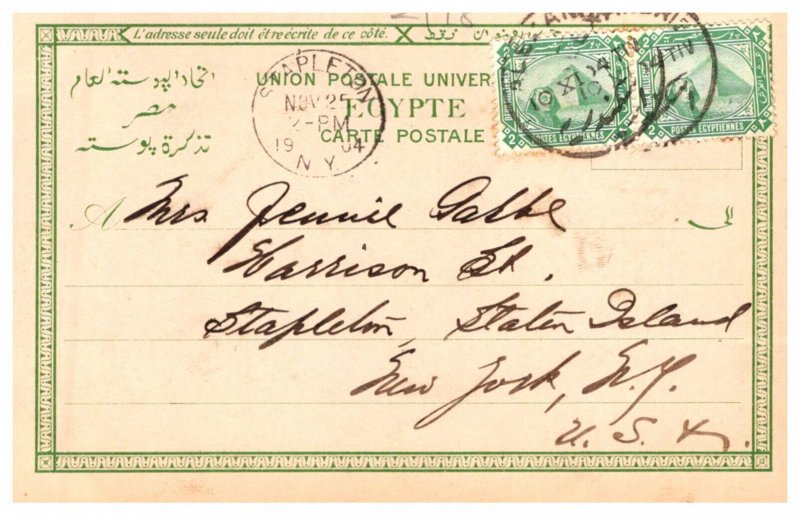 L'adresse seule doit être écrite de ce côté.
UNION POSTALE UNIVER
EGYPTE
CARTE POSTALE
اتحاد البوسته العام
مصر
تذكرة بوسته
STAPLETON
NOV 25
2-PM
19 04
N.Y.
2 2
POSTES EGYPTIENNES
2 2
POSTES EGYPTIENNES
A
Mrs Jennie Gabbe
الى
Harrison St.
Stapleton, Staten Island
New York, N.Y.
U. S. A.